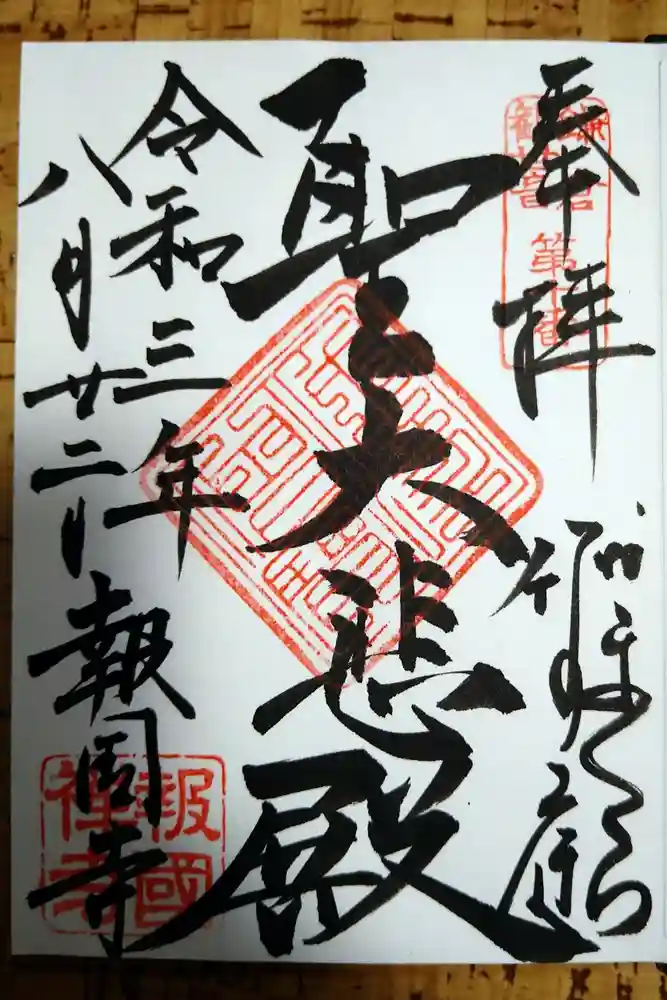 奉拝
鎌倉
観世音
第十番
聖大悲殿
令和三年
八月廿二日
報国寺
報國
禪寺